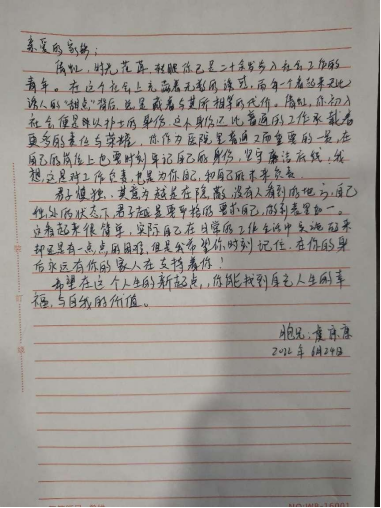 亲爱的家妹：
时光荏苒，转眼你已是二十余岁步入社会工作的
青年。在这个社会上充满着无数的诱惑，而每一个看起来无比
诱人的“甜点”背后，也是藏着与其所相等的代价。你初入
社会便是以护士的身份，这个身份还比普通的工作承载着
更多的责任与荣耀，你作为医院里普通又而重要的一员，在
自己的岗位上也要时刻牢记自己的身份，坚守廉洁底线，我
想，这是对工作负责，也是为你自己，和自己的未来负责。
君子慎独，其意为越是在隐蔽，没有人看到的地方，自己
独处的状态下，君子越是要严格的要求自己，做到表里如一。
这看起来很简单，实际自己在日常的工作生活中实施起来
却还是有一点点的困难，但是公希望你时刻记住，在你的身
后永远有你的家人在支持着你！
希望在这个人生的新起点，你能找到自己人生的幸
福，与自我的价值。
胞兄：
2022年6月24日
NO:WB-16001